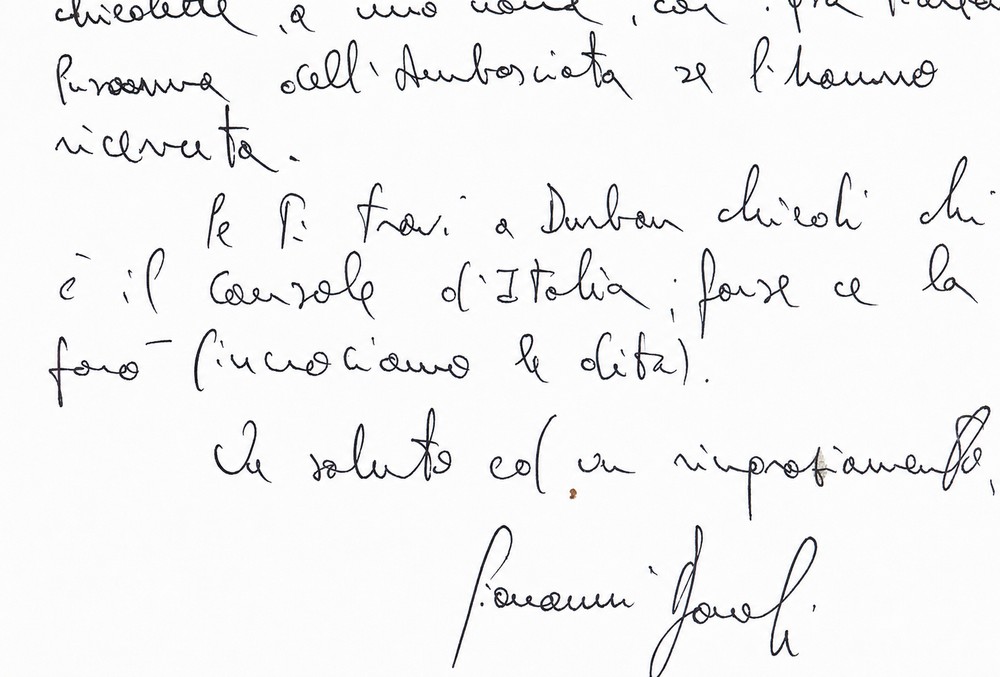 chiedete, a mio nome, con
persona dell'Ambasciata se l'hanno
ricevuta.
Se Ti trovi a Durban chiedi chi
è il Console d'Italia; forse ce la
farò (incrociamo le dita).
Un saluto ed un ringraziamento,
Giovanni